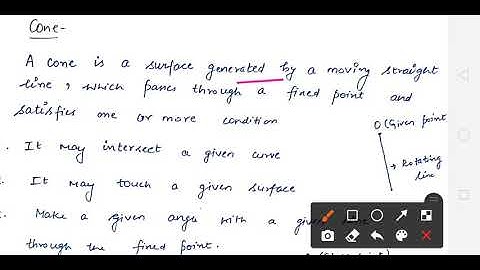 Cone-
A cone is a surface generated by a moving straight
line, which passes through a fixed point and
satisfies one or more condition
. It may intersect a given curve
. It may touch a given surface
. Make a given angle with a given
through the fixed point.
O (Given point
→ Rotating
line